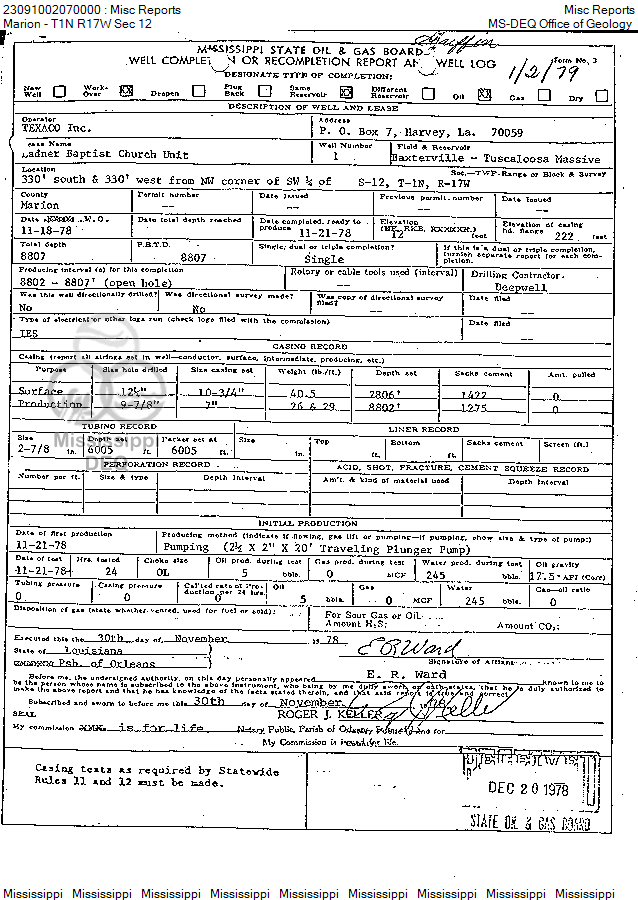 23091002070000 : Misc Reports Misc Reports
Marion - T1N R17W Sec 12 MS-DEQ Office of Geology
Griffin
MISSISSIPPI STATE OIL & GAS BOARD
WELL COMPLETION OR RECOMPLETION REPORT AND WELL LOG
Form No. 3
1/2/79
DESIGNATE TYPE OF COMPLETION:
New Well Work-Over Deepen Plug Back Same Reservoir Different Reservoir Oil Gas Dry
DESCRIPTION OF WELL AND LEASE
Operator Address
TEXACO Inc. P. O. Box 7, Harvey, La. 70059
Lease Name Well Number Field & Reservoir
Ladner Baptist Church Unit 1 Baxterville - Tuscaloosa Massive
Location Sec.—TWP-Range or Block & Survey
330' south & 330' west from NW corner of SW ¼ of S-12, T-1N, R-17W
County Permit number Date Issued Previous permit number Date Issued
Marion -- -- -- --
Date W.O. Date total depth reached Date completed, ready to produce Elevation feet Elevation of casing hd. flange feet
11-18-78 11-21-78 12 222
Total depth P.B.T.D. Single, dual or triple completion? If this is a dual or triple completion, furnish separate report for each completion.
8807 8807 Single
Producing interval (s) for this completion Rotary or cable tools used (interval) Drilling Contractor
8802 - 8807' (open hole) -- Deepwell
Was this well directionally drilled? Was directional survey made? Was copy of directional survey filed? Date filed
No No -- --
Type of electrical or other logs run (check logs filed with the commission) Date filed
IES --
CASING RECORD
Casing (report all strings set in well—conductor, surface, intermediate, producing, etc.)
Purpose Size hole drilled Size casing set Weight (lb./ft.) Depth set Sacks cement Amt. pulled
Surface 12¼" 10-3/4" 40.5 2806' 1422 0
Production 9-7/8" 7" 26 & 29 8802' 1275 0
TUBING RECORD LINER RECORD
Size Depth set Packer set at Size Top Bottom Sacks cement Screen (ft.)
2-7/8 in. 6005 ft. 6005 ft. in. ft. ft.
PERFORATION RECORD ACID, SHOT, FRACTURE, CEMENT SQUEEZE RECORD
Number per ft. Size & type Depth Interval Am't. & kind of material used Depth Interval
INITIAL PRODUCTION
Date of first production Producing method (indicate if flowing, gas lift or pumping—if pumping, show size & type of pump:)
11-21-78 Pumping (2½ X 2" X 20' Traveling Plunger Pump)
Date of test Hrs. tested Choke size Oil prod. during test Gas prod. during test Water prod. during test Oil gravity
11-21-78 24 OL 5 bbls. 0 MCF 245 bbls. 17.5 ° API (Corr)
Tubing pressure Casing pressure Cal'ted rate of Production per 24 hrs. Oil Gas Water Gas—oil ratio
0 0 0 5 bbls. 0 MCF 245 bbls. 0
Disposition of gas (state whether vented, used for fuel or sold): For Sour Gas or Oil
Amount H₂S: Amount CO₂:
Executed this the 30th day of November 19 78
State of Louisiana E R Ward
Psh. of Orleans Signature of Affiant
Before me, the undersigned authority, on this day personally appeared E. R. Ward known to me to
be the person whose name is subscribed to the above instrument, who being by me duly sworn on oath states, that he is duly authorized to
make the above report and that he has knowledge of the facts stated therein, and that said report is true and correct.
Subscribed and sworn to before me this 30th day of November, 1978
SEAL ROGER J. KELLER
My commission is for life Notary Public, Parish of
My Commission is life.
Casing tests as required by Statewide
Rules 11 and 12 must be made.
DEC 20 1978
STATE OIL & GAS BOARD
Mississippi
DEQ
Mississippi Mississippi Mississippi Mississippi Mississippi Mississippi Mississippi Mississippi Mississippi